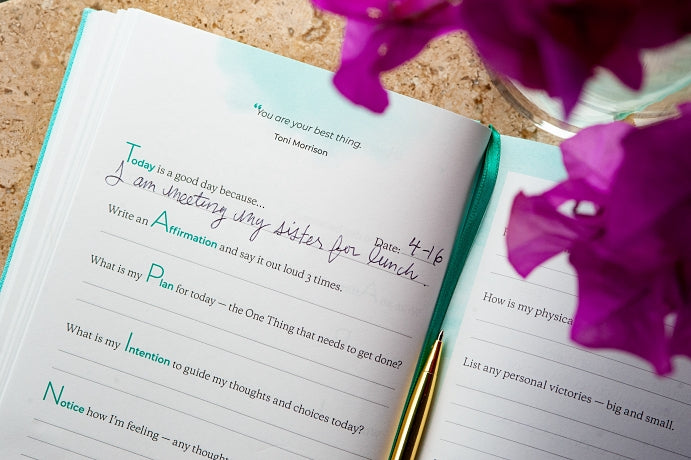 “You are your best thing.
Toni Morrison
Date: 4-16
Today is a good day because...
I am meeting my sister for lunch.
Write an Affirmation and say it out loud 3 times.
What is my Plan for today — the One Thing that needs to get done?
What is my Intention to guide my thoughts and choices today?
Notice how I'm feeling — any
How is my
List any personal victories — big and small.